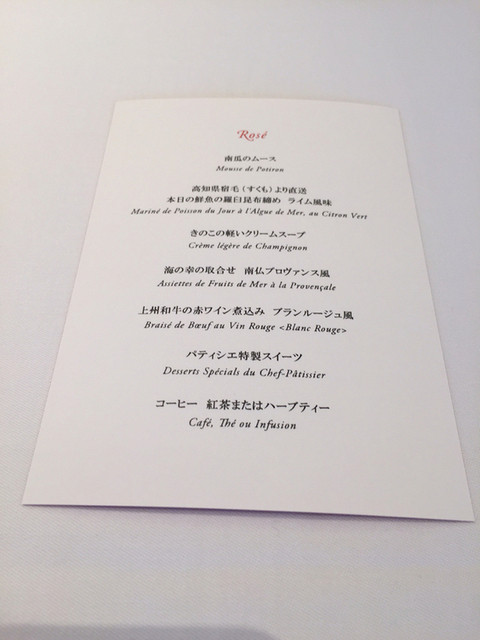 Rosé
南瓜のムース
Mousse de Potiron
高知県宿毛（すくも）より直送
本日の鮮魚の羅臼昆布締め ライム風味
Mariné de Poisson du Jour à l'Algue de Mer, au Citron Vert
きのこの軽いクリームスープ
Crème légère de Champignon
海の幸の取合せ 南仏プロヴァンス風
Assiettes de Fruits de Mer à la Provençale
上州和牛の赤ワイン煮込み ブランルージュ風
Braisé de Bœuf au Vin Rouge <Blanc Rouge>
パティシエ特製スイーツ
Desserts Spécials du Chef-Pâtissier
コーヒー 紅茶またはハーブティー
Café, Thé ou Infusion